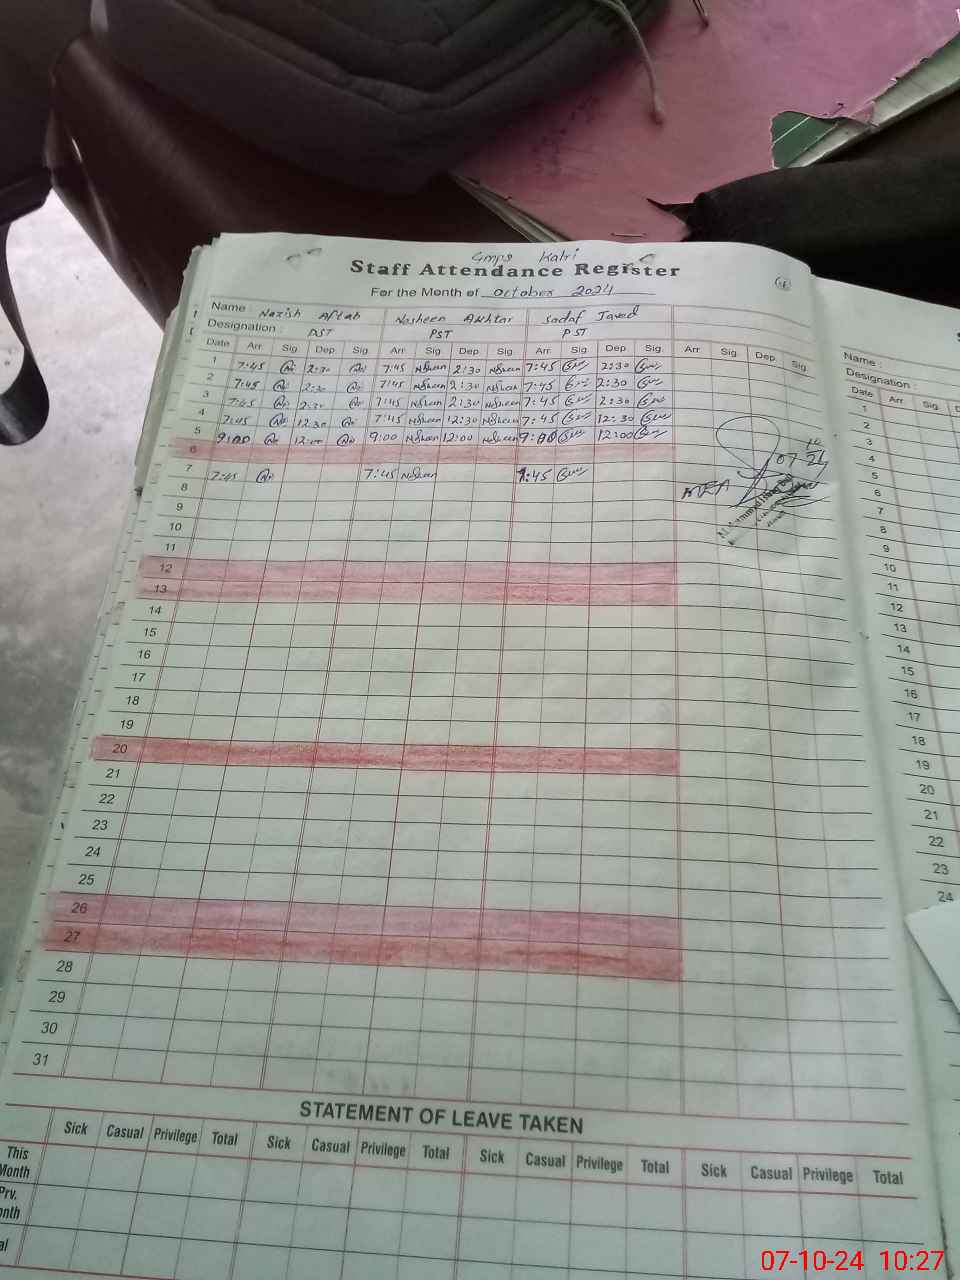 Gmps Katri
Staff Attendance Register
For the Month of October 2024
Name : Nazish Aftab Nosheen Akhtar Sadaf Javed
Designation : PST PST
Date Arr. Sig. Dep. Sig. Arr. Sig. Dep. Sig. Arr. Sig. Dep. Sig. Arr. Sig. Dep. Sig.
1 7:45 2:30 7:45 2:30 7:45 2:30
2 7:45 2:30 7:45 2:30 7:45 2:30
3 7:45 2:30 7:45 2:30 7:45 2:30
4 7:45 12:30 7:45 12:30 7:45 12:30
5 9:00 12:00 9:00 12:00 9:00 12:00
6
7 7:45 7:45 7:45
8
9
10
11
12
13
14
15
16
17
18
19
20
21
22
23
24
25
26
27
28
29
30
31
STATEMENT OF LEAVE TAKEN
Sick Casual Privilege Total Sick Casual Privilege Total Sick Casual Privilege Total Sick Casual Privilege Total
This
Month
Prv.
Name :
Designation :
Date Arr. Sig.
1
2
3
4
5
6
7
8
9
10
11
12
13
14
15
16
17
18
19
20
21
22
23
24
07-10-24 10:27